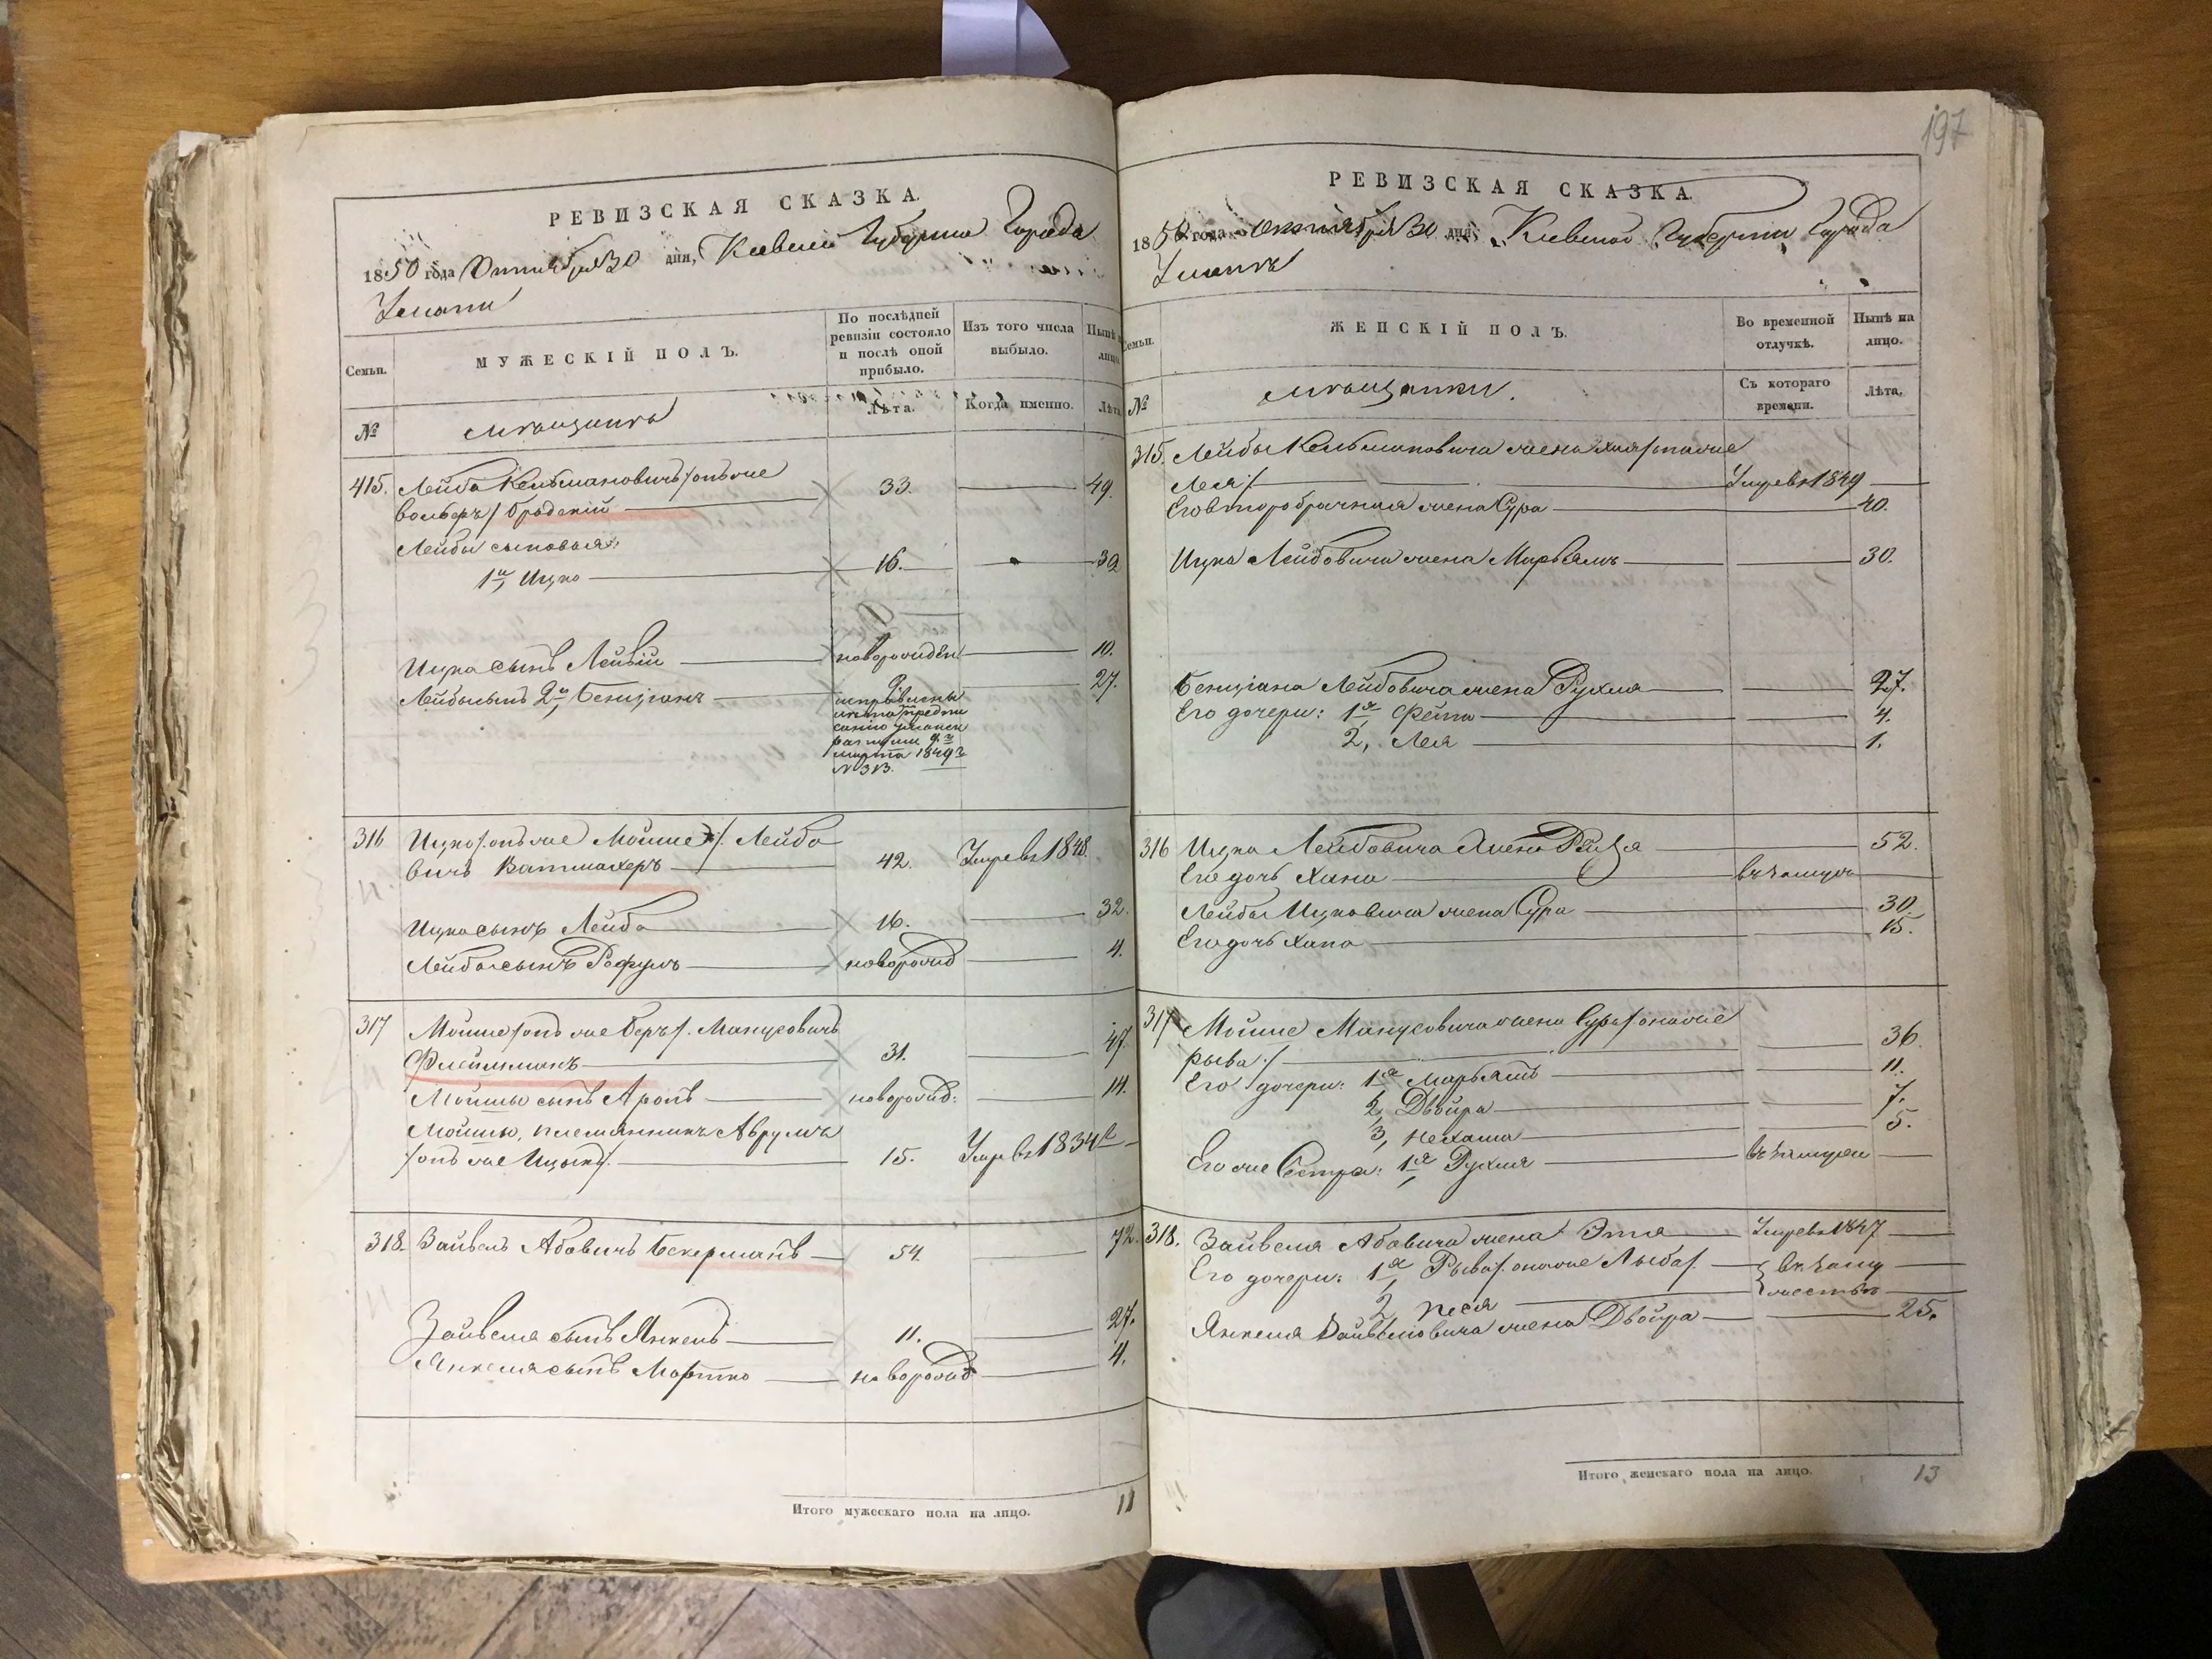 РЕВИЗСКАЯ СКАЗКА.
1850 года Октября 30 дня, Киевской Губернии Города
Умани
Семьи.
МУЖЕСКІЙ ПОЛЪ.
По послѣдней ревизіи состояло и послѣ оной прибыло.
Изъ того числа выбыло.
Нынѣ на лицо.
№
мѣщанѣ
Лѣта.
Когда именно.
Лѣта
415. Лейба Кельмановичъ /онъ же
Вольфъ/ Бродскій 33. 49.
Лейбы сыновья:
1й, Ицко 16. 32
Ицка сынъ Лейвій новорожден 10.
Лейбы сынъ 2й, Бенціанъ 9. 27.
исправлены
лѣта предпи
санію уманск
9го
марта 1849г
N 313.
316 Ицко /.онъ же Мойше/. Лейбо
вичъ Ватмахеръ 42. Умре въ 1848.
Ицка сынъ Лейба 16. 32.
Лейбы сынъ Рефулъ новорожд 4.
317 Мойше /онъ же Беръ/. Манусовичъ
Флейшманъ 31. 47
Мойши сынъ Аронъ новорожд: 14.
Мойши, племянникъ Аврумъ
/онъ же Ицыкъ/. 15. Умре въ 1834г
318. Зайвель Абовичъ Бекерманъ 54. 72.
Зайвеля сынъ Янкель 11. 27.
Янкеля сынъ Мортко новорожд 4.
Итого мужескаго пола на лицо. 11
197
РЕВИЗСКАЯ СКАЗКА.
1850 года октября 30 дня, Киевской Губернии Города
Умани
Семьи.
ЖЕНСКІЙ ПОЛЪ.
Во временной отлучкѣ.
Нынѣ на лицо.
№
мѣщанки.
Съ котораго времени.
Лѣта.
315. Лейбы Кельмановича жена Хая /онаже
Лея/ Умре въ 1849
Его второбрачная жена Сура 40.
Ицка Лейбовича жена Марьямъ 30.
Бенціана Лейбовича жена Рухля 27.
Его дочери: 1я, Фейга 4.
2, Лея 1.
316 Ицка Лейбовича жена Рейзя 52.
Его дочь Хана въ замуж
Лейбы Ицковича жена Сура 30.
Его дочь Хана 15.
317 Мойше Манусовича жена Сура /онаже
Рыва/ 36.
Его дочери: 1я Марьямъ 11.
2, Двойра 7.
3, Нехама 5.
Его же Сестра: 1я, Рухля въ замуже
318. Зайвеля Абовича жена Этя Умре въ 1847
Его дочери: 1я, Рыва /. онаже Лыба/. въ заму
2, Песя жествѣ
Янкеля Зайвеловича жена Двойра 25.
Итого женскаго пола на лицо. 13